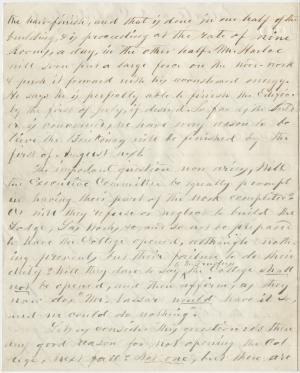 the hair-finish, and that is done in one half of the
building, & is proceeding at the rate of nine
rooms, a day, in the other half. Mr. Harloe
will soon put a large force on the
& push it forward with his accustomed energy.
He says he is perfectly able to finish the College
by the first of July, if desired. So far as the
is concerned, we have every reason to be
lieve the building will be finished by the
first of August next.
The important question now arises, Will
the Executive Committee be equally prompt
in having their part of the work completed?
Or will they refuse or neglect to build the
Lodge, Gas works, &c. and so not be prepared
to have the College opened, although noth
ing prevents but their failure to do their
duty? Will they dare to say, the College shall
not be opened, and then affirm, as they
now do, "Mr. Vassar would have it so,
and we could do nothing."
Let us consider this question: is there
any good reason for not opening the Col
lege, next fall? Not one, but there are